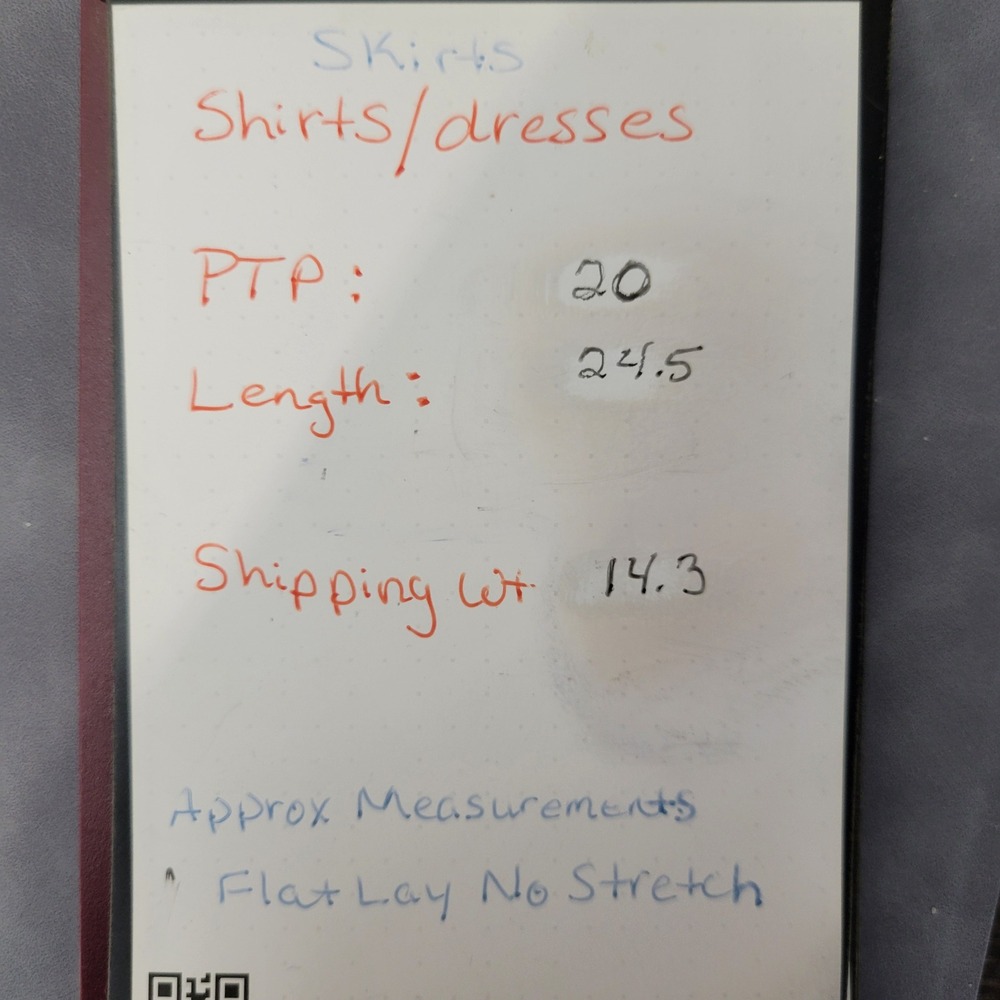 Skirts
Shirts/dresses
PTP: 20
Length: 24.5
Shipping Wt 14.3
Approx Measurements
Flat Lay No Stretch